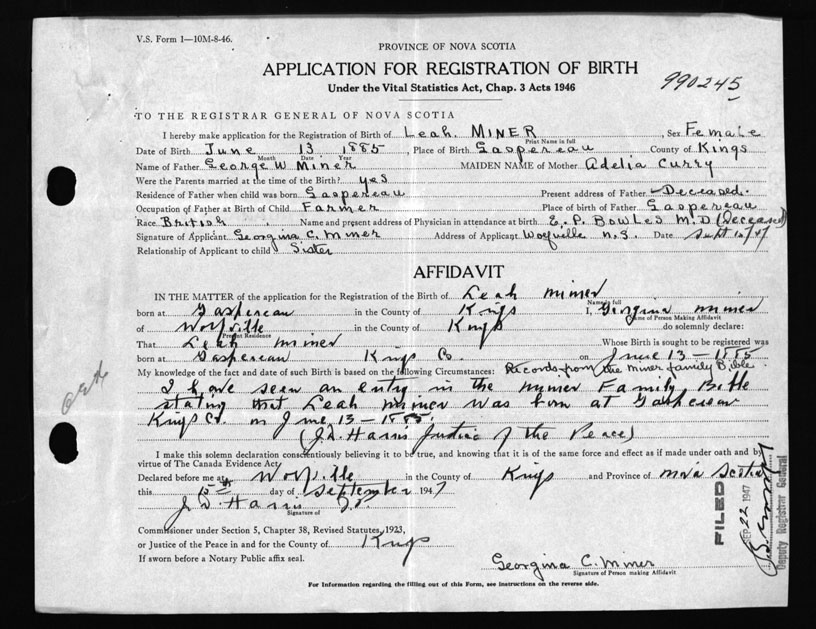 V.S. Form 1—10M-8-46.
PROVINCE OF NOVA SCOTIA
APPLICATION FOR REGISTRATION OF BIRTH
990245
Under the Vital Statistics Act, Chap. 3 Acts 1946
TO THE REGISTRAR GENERAL OF NOVA SCOTIA
I hereby make application for the Registration of Birth of Leah. MINER, Sex Female
Print Name in full
Date of Birth June 13 1885, Place of Birth Gaspereau County of Kings
Month Date Year
Name of Father George W Miner MAIDEN NAME of Mother Adelia Curry
Were the Parents married at the time of the Birth? yes
Residence of Father when child was born Gaspereau Present address of Father Deceased.
Occupation of Father at Birth of Child Farmer Place of Birth of Father Gaspereau
Race British Name and present address of Physician in attendance at birth E. P. Bowles M.D (Deceased)
Signature of Applicant Georgina C. Miner Address of Applicant Wolfville N.S. Date Sept 15/47
Relationship of Applicant to child Sister
AFFIDAVIT
IN THE MATTER of the application for the Registration of the Birth of Leah Miner
Name in full
born at Gaspereau in the County of Kings I, Georgina Miner
Name of Person Making Affidavit
of Wolfville in the County of Kings do solemnly declare:
Present Residence
That Leah Miner Whose Birth is sought to be registered was
born at Gaspereau Kings Co. on June 13—1885
My knowledge of the fact and date of such Birth is based on the following Circumstances: Records from the Miner family Bible.
I have seen an entry in the Miner Family Bible
stating that Leah Miner was born at Gaspereau
Kings Co. on June 13—1885
(J.D. Harris Justice of the Peace)
I make this solemn declaration conscientiously believing it to be true, and knowing that it is of the same force and effect as if made under oath and by
virtue of The Canada Evidence Act.
Declared before me at Wolfville in the County of Kings and Province of Nova Scotia
this 15th day of September 1947
J. D. Harris J.P.
Signature of
Commissioner under Section 5, Chapter 38, Revised Statutes, 1923,
or Justice of the Peace in and for the County of Kings
If sworn before a Notary Public affix seal.
Georgina C. Miner
Signature of Person making Affidavit.
For Information regarding the filling out of this Form, see instructions on the reverse side.
FILED
SEP 22 1947
Deputy Registrar General